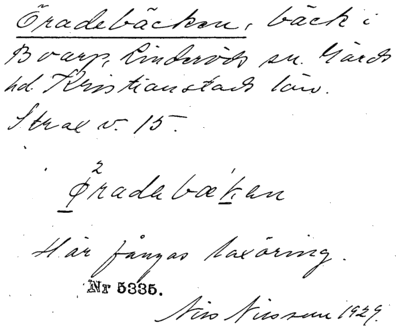 Öradebäcken, bäck i
Boarp, Linderöds sn. Gärds
hd. Kristianstads län.
Strax v. 15.
2
Øradebækan
Här fångas laxöring.
Nr 5335.
Nils Nilsson 1929.